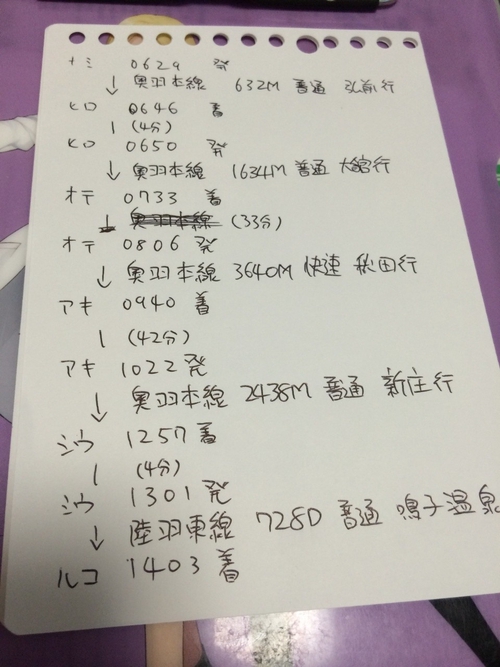 ナミ 0629 発
↓ 奥羽本線 632M 普通 弘前行
ヒロ 0646 着
| (4分)
ヒロ 0650 発
↓ 奥羽本線 1634M 普通 大館行
オテ 0733 着
↓ 奥羽本線 (33分)
オテ 0806 発
↓ 奥羽本線 3640M 快速 秋田行
アキ 0940 着
| (42分)
アキ 1022 発
↓ 奥羽本線 2438M 普通 新庄行
シウ 1257 着
| (4分)
シウ 1301 発
↓ 陸羽東線 728D 普通 鳴子温泉
ルコ 1403 着